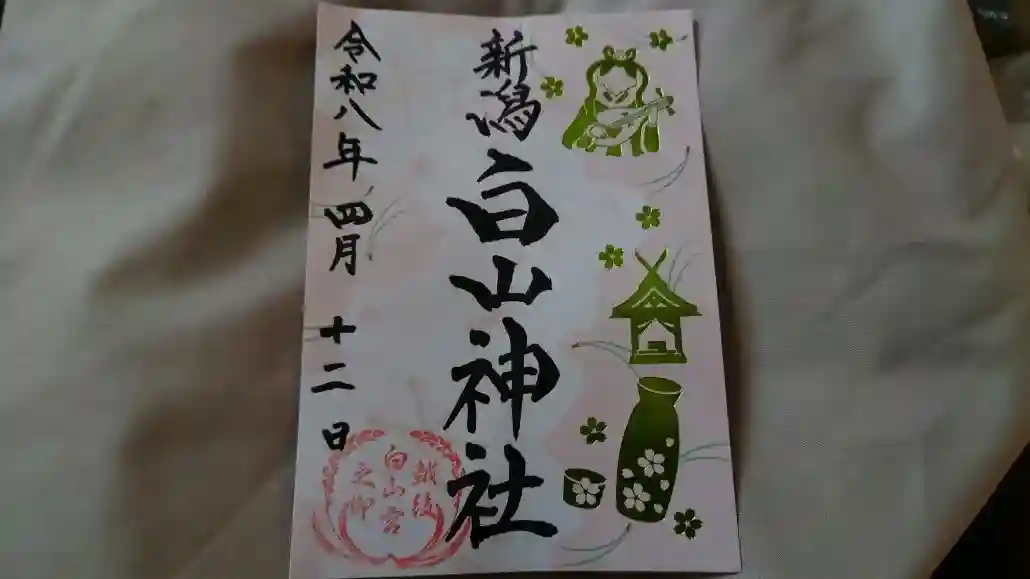 新潟白山神社
令和八年 四月 十二日
越後
白山宮
之御